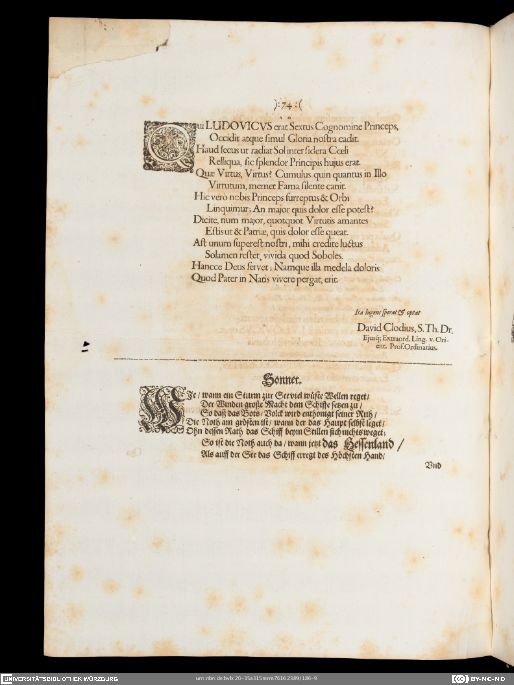 ):74:(
Qui LUDOVICVS erat Sextus Cognomine Princeps,
Occidit atque simul Gloria nostra cadit.
Haud secus ut radiat Sol inter sidera Cœli
Relliqua, sic splendor Principis hujus erat.
Quæ Virtus, Virtus? Cumulus quin quantus in Illo
Virtutum, memet Fama silente canit.
Hic vero nobis Princeps surreptus & Orbi
Linquimur: An major quis dolor esse potest?
Dicite, num major, quotquot Virtutis amantes
Estis ut & Patriæ, quis dolor esse queat.
Ast unum superest nostri, mihi credite luctus
Solamen restet, vivida quod Soboles.
Hancce Deus servet: Namque illa medela doloris
Quod Pater in Natis vivere pergat, erit.
Ita lugens sperat & optat
David Clodius, S. Th. Dr.
Ejusq; Extraord. Ling. v. Ori-
ent. Prof. Ordinarius.
Sonnet.
WIe / wann ein Sturm zur See viel wüste Wellen reget /
Der Winden groste Macht dem Schiffe setzen zu /
So daß das Bots-Volck wird entholiget seiner Ruh /
Die Noth am grösten ist / wann der das Haupt selbst leget /
Ohn dessen Rath das Schiff beym Stillen sich nichts weget;
So ist die Noth auch da / wann jetzt das Hessenland /
Als auff der See das Schiff erregt des Höchsten Hand /
Und
UNIVERSITÄTSBIBLIOTHEK WÜRZBURG
BY-NC-ND